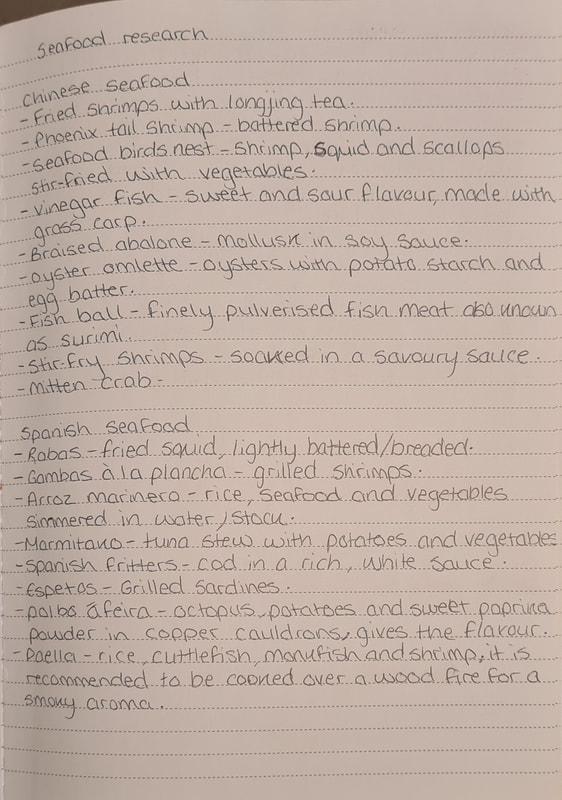 Seafood research
Chinese seafood
- Fried shrimps with longjing tea.
- Phoenix tail shrimp - battered shrimp.
- Seafood birds nest - shrimp, squid and scallops
stir-fried with vegetables.
- Vinegar fish - sweet and sour flavour, made with
grass carp.
- Braised abalone - mollusk in soy sauce.
- Oyster omlette - oysters with potato starch and
egg batter.
- Fish ball - finely pulverised fish meat also known
as surimi.
- Stir-fry shrimps - soaked in a savoury sauce.
- Mitten crab -
Spanish seafood
- Rabas - fried squid, lightly battered/breaded.
- Gambas à la plancha - grilled shrimps.
- Arroz marinero - rice, seafood and vegetables
simmered in water/stock.
- Marmitako - tuna stew with potatoes and vegetables
- Spanish fritters - cod in a rich, white sauce.
- Espetos - Grilled Sardines.
- polbo á feira - octopus, potatoes and sweet paprika
powder in copper cauldrons, gives the flavour.
- Paella - rice, cuttlefish, monkfish and shrimp, it is
recommended to be cooked over a wood fire for a
smoky aroma.